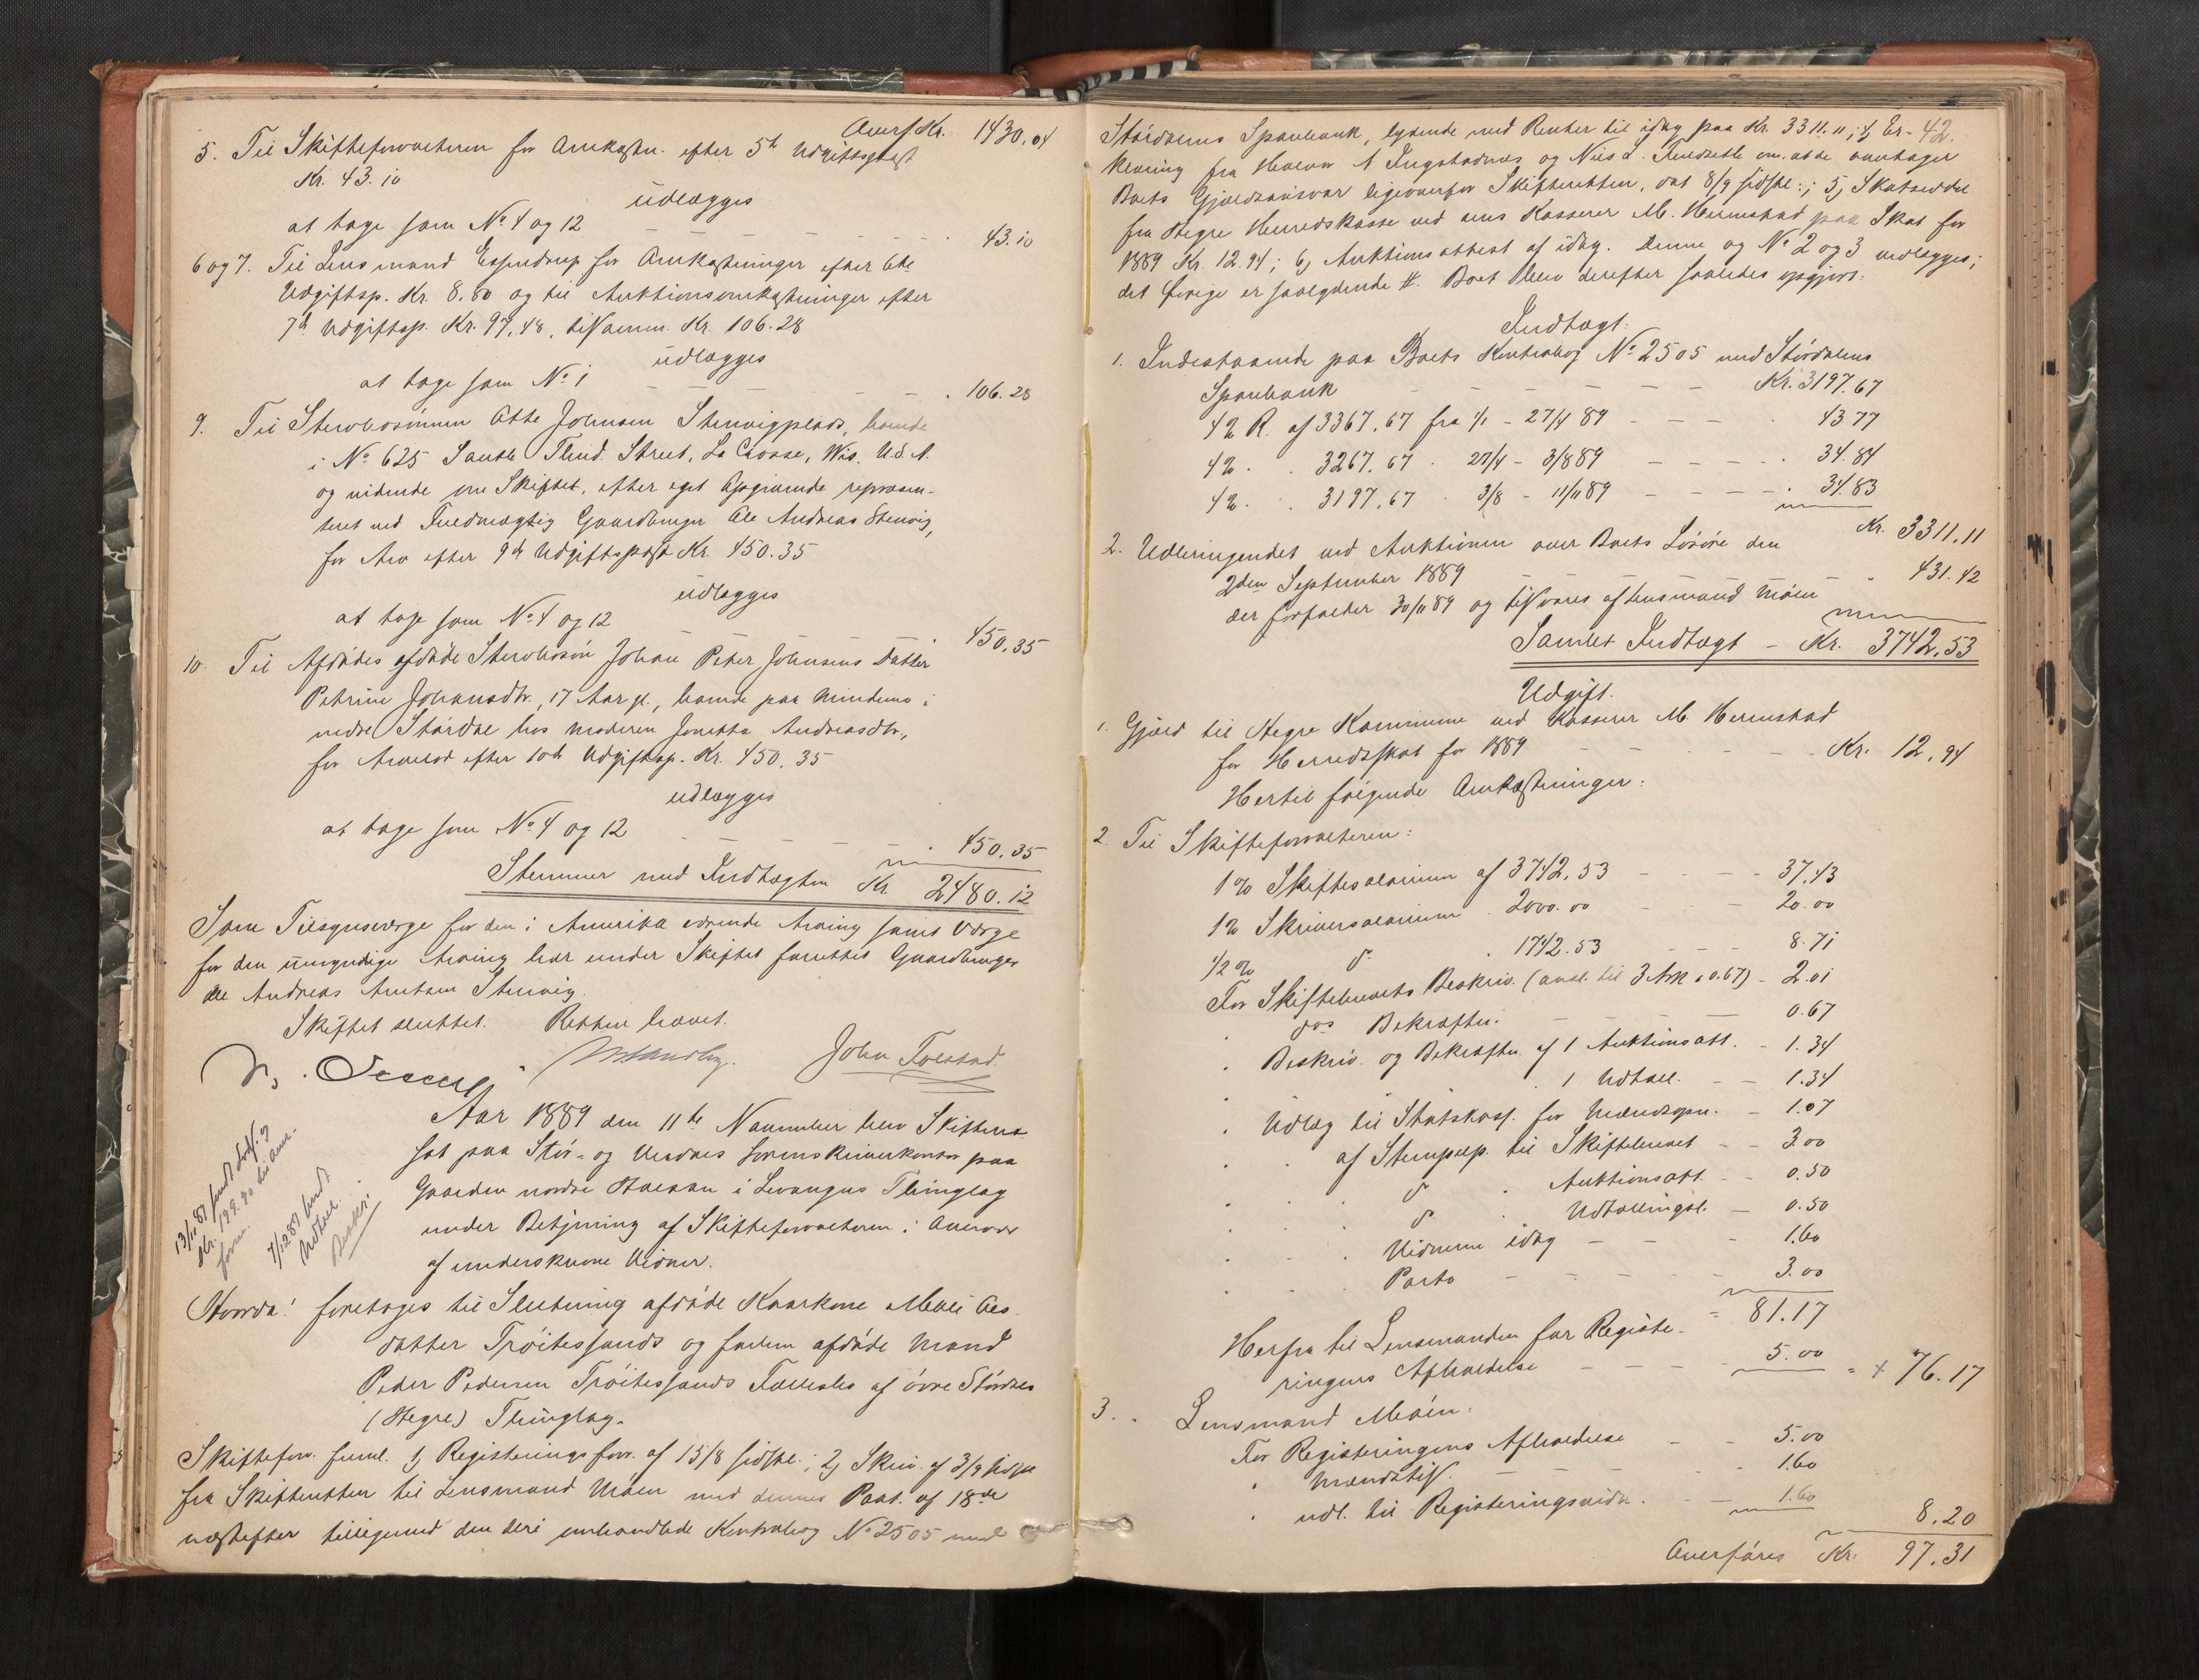 Overf. Kr. 1430.04
5. Til Skifteforvalteren for Omkostn. efter 5te Udgiftspost
Kr. 43.10
udlægges
at tage som No 4 og 12 - - - - 43.10
6 og 7. Til Lensmand Espedrup for Omkostninger efter 6te
Udgiftsp. Kr. 8.80 og til Auktionsomkostninger efter
7de Udgiftsp. Kr. 97.48, tilsamm. Kr. 106.28
udlægges
at tage som No 1 - - - - 106.28
9. Til Stervbosønnen Otte Johnsen Stenvigplads, boende
i No 625 South Third Street, La Crosse, Wis. U.S.A.
og vidende om Skiftet, efter eget Opgivende repræsen-
teret ved Fuldmægtig Gaardbruger Ole Andreas Stenvig,
for Arv efter 9de Udgiftspost Kr. 450.35
udlægges
at tage som No 4 og 12 450.35
10. Til Afdødes afdøde Stervbosøn Johan Peter Johnsens Datter
Petrine Johansdtr., 17 Aar gl., boende paa Mindemo i
nedre Størdal hos Moderen Jonetta Andreasdtr.,
for Arvelod efter 10de Udgiftsp. Kr. 450.35
udlægges
at tage som No 4 og 12 - - - - 450.35
Stemmer med Indtægten Kr. 2480.12
Som Tilsynsværge for den i Amerika værende Arving samt Værge
for den umyndige Arving har under Skiftet fungeret Gaardbruger
Ole Andreas Arntsen Stenvig.
Skiftet sluttet. Retten hævet.
John Folstad.
Aar 1889 den 11te November blev Skifteret
sat paa Stør- og Verdals Sorenskriverkontor paa
Gaarden nordre Halsan i Levangers Thinglag
under Betjening af Skifteforvalteren i Overvær
af underskrevne Vidner.
Hvorda: foretoges til Slutning afdøde Kaarkone Mali Ols-
datter Trøitessands og forlæn afdøde Mand
Peder Pedersen Trøitessands Fællesbo af øvre Størdals
(Hegre) Thinglag.
Skifteforv. freml. 1) Registeringsforr. af 15/8 sidstl.; 2) Skriv. af 3/9 sidstl.
fra Skifteretten til Lensmand Moen med dennes Paat. af 18de
næstefter tilligemed den deri omhandlede Kontrabog No 2505 med
42.
Størdalens Sparebank, lydende med Renter til idag paa Kr. 3311.11; 4) Er-
klæring fra Halvor A Ingstadnæs og Nils L. Fuldsætte om at de overtager
Boets Gjældsansvar ligeoverfor Skifteretten, dat 8/9 sidstl.; 5) Skatseddel
fra Hegre Herredskasse ved dens Kasserer M. Hermstad paa Skat for
1889 Kr. 12.94; 6) Auktionsattest af idag. Denne og No 2 og 3 vedlægges;
det øvrige er saalydende #. Boet blev derefter saaledes opgjort:
Indtægt:
1. Indestaaende paa Boets Kontrabog No 2505 med Størdalens
Sparebank - - - - Kr. 3197.67
4% R. af 3367.67 fra 1/1 - 27/4 89 - - - 43.77
4% . . 3267.67 . 27/4 - 3/8 89 - - - 34.84
4% . . 3197.67 . 3/8 - 11/11 89 - - - 34.83
Kr. 3311.11
2. Udbringendet ved Auktionen over Boets Løsøre den
2den September 1889 - - - 431.42
der forfalder 30/11 89 og tilsvares af Lensmand Moen
Samlet Indtægt - Kr. 3742.53
Udgift.
1. Gjæld til Hegre Kommune ved Kasserer M. Hermstad
for Herredsskat for 1889 - - - Kr. 12.94
Hertil følgende Omkostninger:
2. Til Skifteforvalteren:
1% Skiftesalarium af 3742.53 - - - 37.43
1% Skriversalarium . 2000.00 - - 20.00
1/2% do . 1742.53 - - - 8.71
For Skiftebrevets Beskriv. (ansl. til 3 Ark à 0.67) - 2.01
. dos Bekræftn. - - - 0.67
. Beskriv. og Bekræftn. af 1 Auktionsatt. - 1.34
1 Udtall. - - 1.34
. Udlæg til Statskass. for Mændsopn. - 1.07
. . af Stempelp. til Skiftebrevet - - 3.00
. . do . Auktionsatt. - - 0.50
. . do . Udtallingsl. - 0.50
. . . Vidnerne idag - - - 1.60
. . . Porto - - - 3.00
81.17
Herfra til Lensmanden for Registe-
ringens Afholdelse - - - 5.00 = 76.17
3. . Lensmand Moén:
For Registeringens Afholdelse - - 5.00
. Mændstils. - - - 1.60
. udl. til Registeringsvidn. - - 1.60
8.20
Overføres Kr. 97.31